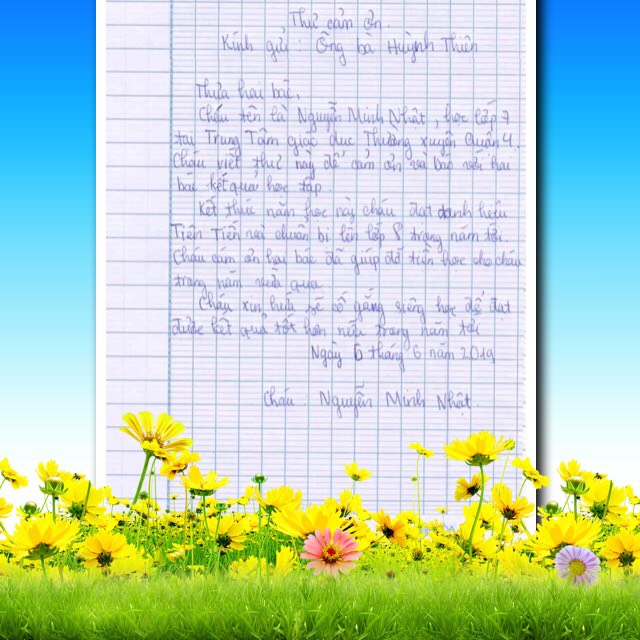 Thư cảm ơn.
Kính gửi: Ông bà Huỳnh Thiên
Thưa hai bác,
Cháu tên là Nguyễn Minh Nhật, học lớp 7
tại Trung Tâm giáo dục Thường xuyên Quận 4.
Cháu viết thư này để cảm ơn và báo với hai
bác kết quả học tập.
Kết thúc năm học này cháu đạt danh hiệu
Tiên Tiến và chuẩn bị lên lớp 8 trong năm tới.
Cháu cảm ơn hai bác đã giúp đỡ tiền học cho cháu
trong năm vừa qua.
Cháu xin hứa sẽ cố gắng siêng học để đạt
được kết quả tốt hơn nữa trong năm tới
Ngày 6 tháng 6 năm 2019
Cháu: Nguyễn Minh Nhật.